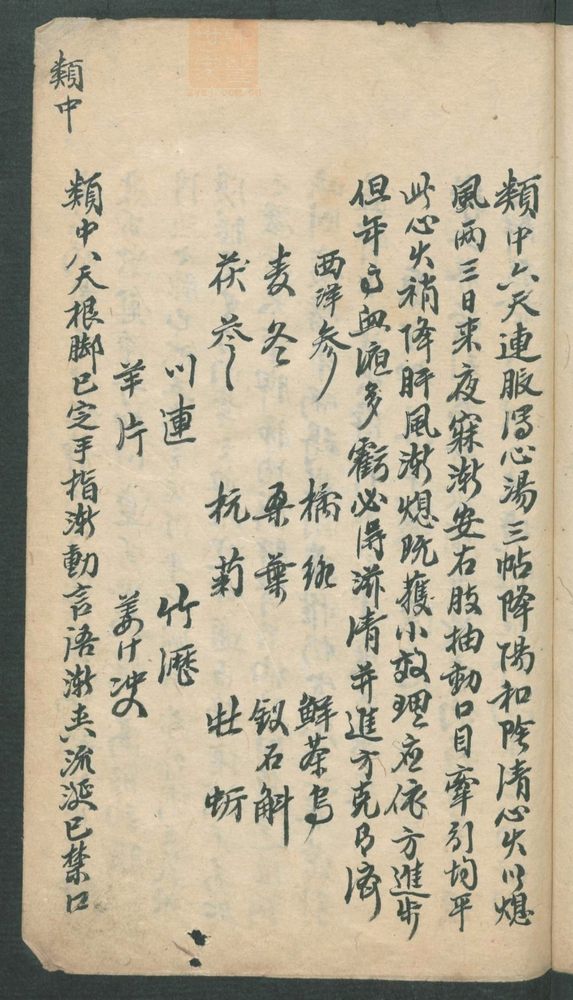 類中六天連服瀉心湯三帖降陽和陰清心火以熄
風兩三日來夜寐漸安右肢抽動口目牽引均平
此心火稍降肝風漸熄既獲小效理應依方進步
但年高血液多虧必得滋清并進方克有濟
西洋參 橘絡 鮮茶烏
麦冬 桑葉 釵石斛
茯苓 杭菊 牡蛎
川連 竹瀝
羊片 姜汁
類中八天根脚已定手指漸動言語漸爽流涎已禁口
類中